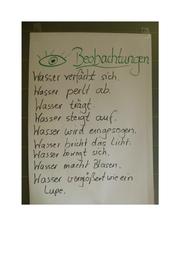 Beobachtungen
Wasser verfärbt sich.
Wasser perlt ab.
Wasser trägt.
Wasser steigt auf.
Wasser wird eingesogen.
Wasser bricht das Licht.
Wasser bewegt sich.
Wasser macht Blasen.
Wasser vergrößert wie ein
Lupe.